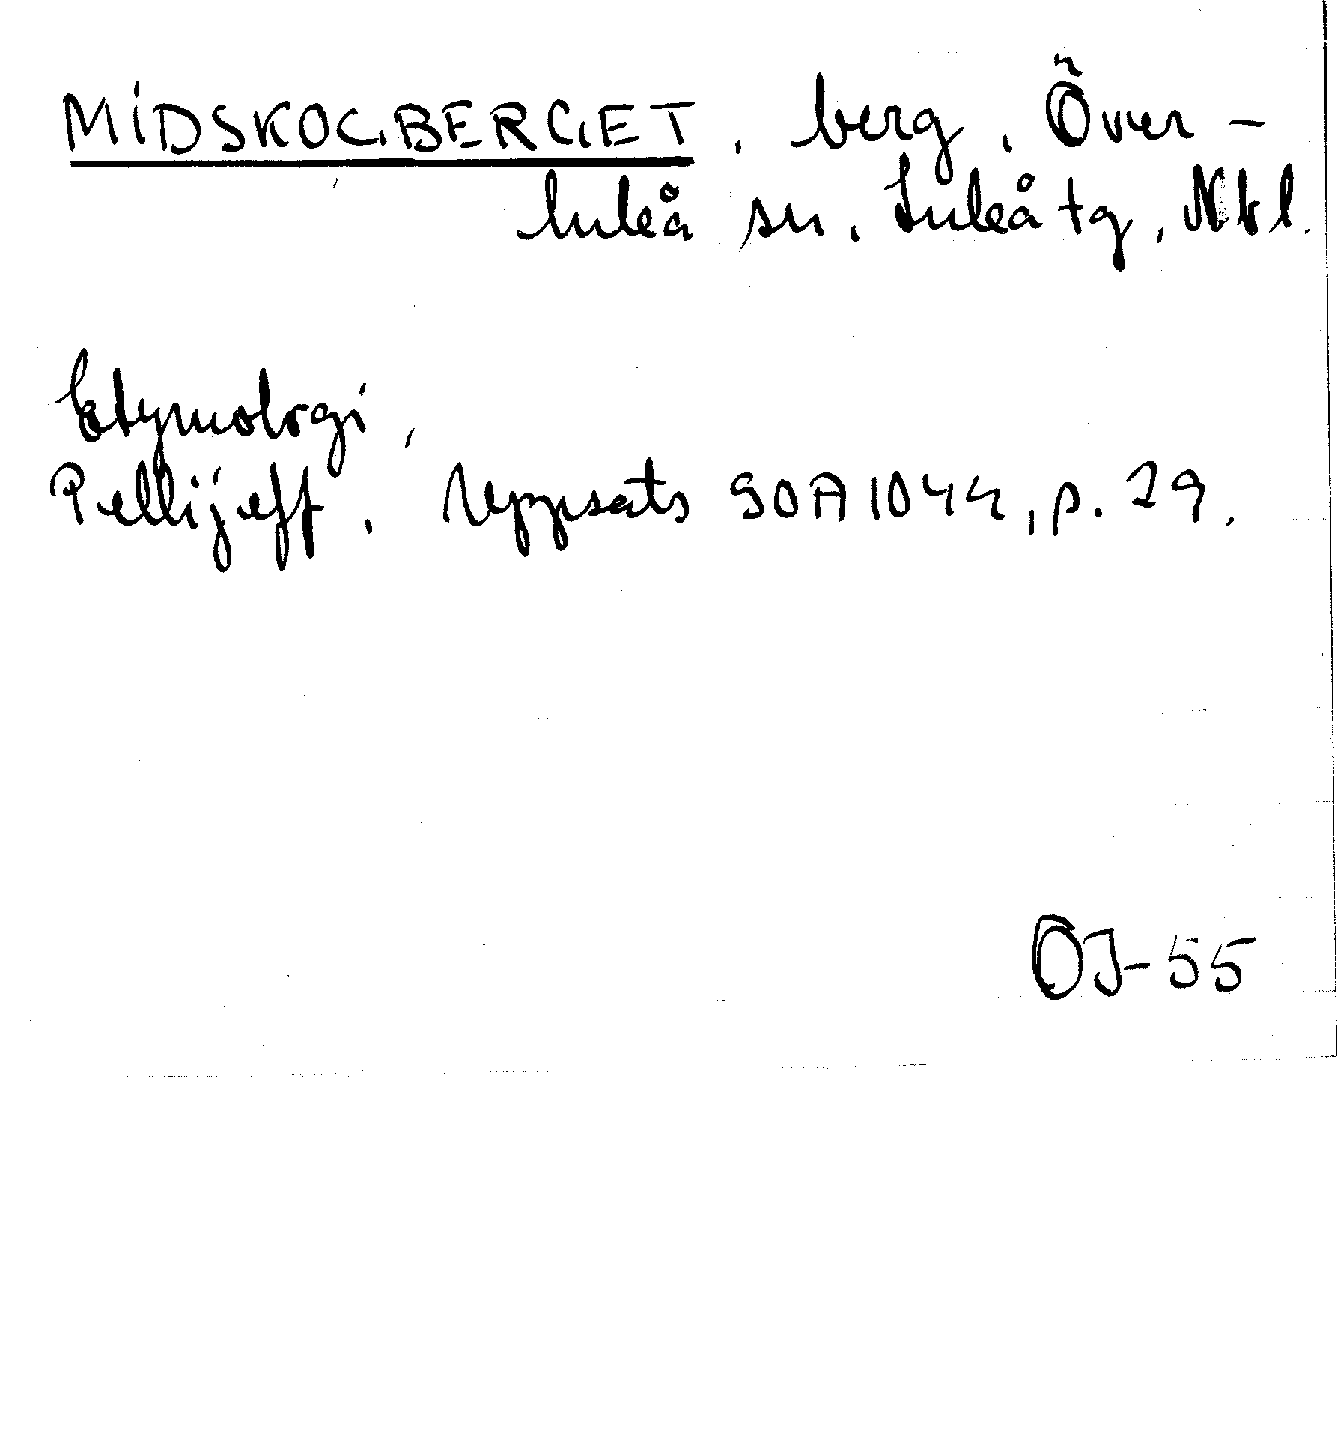 MIDSKOGBERGET, berg, Över-
luleå sn, Luleå tg, Nbl.
Etymologi,
Pellijeff, Uppsats SOA 1044, p. 29.
ÖJ-55